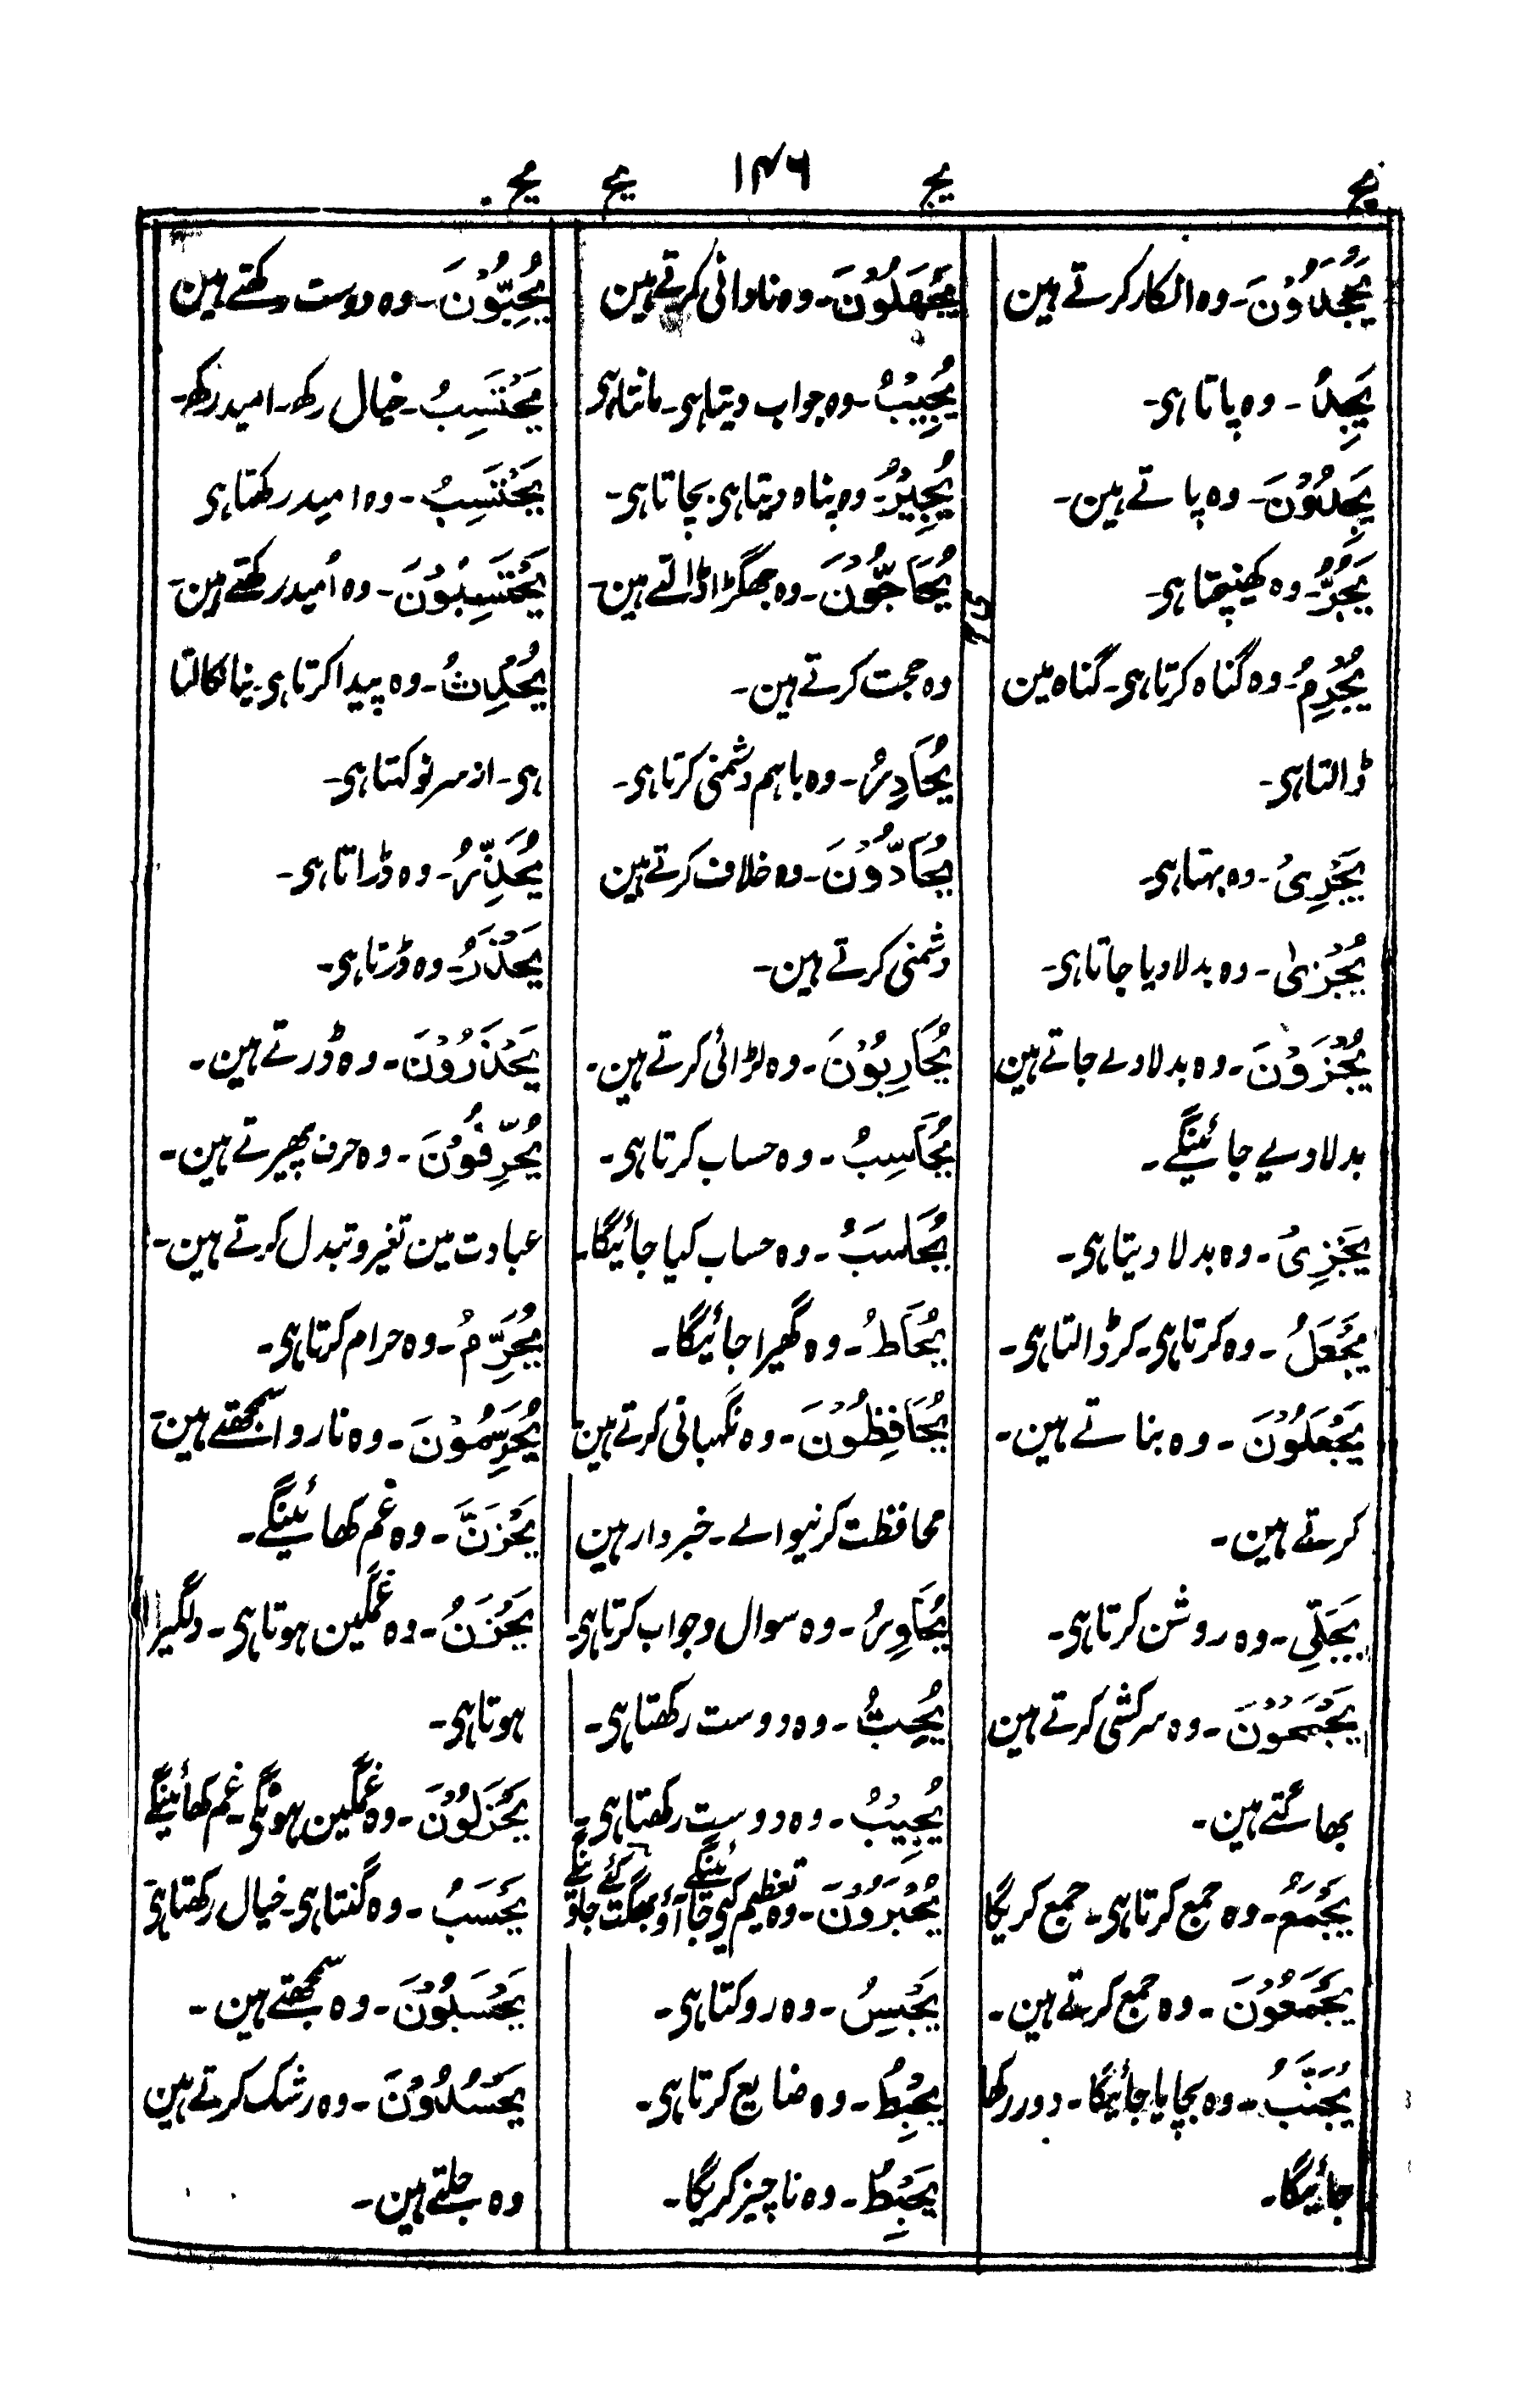 یج ۱۴۶ یج یح یح
یَجْحَدُوْنَ۔ وہ انکار کرتے ہین
یَجِدُ۔ وہ پاتا ہی۔
یَجِدُوْنَ۔ وہ پاتے ہین۔
یَجُرُّ۔ وہ کھینچتا ہی۔
یُجْرِمُ۔ وہ گناہ کرتا ہی۔ گناہ مین
ڈالتا ہی۔
یَجْرِیُ۔ وہ بہتا ہی۔
یُجْزیٰ۔ وہ بدلا دیا جاتا ہی۔
یُجْزَوْنَ۔ وہ بدلا دے جاتے ہین
بدلا دیے جائینگے۔
یَجْزِیُ۔ وہ بدلا دیتا ہی۔
یَجْعَلُ۔ وہ کرتا ہی۔ کر ڈالتا ہی۔
یَجْعَلُوْنَ۔ وہ بناتے ہین۔
کرتے ہین۔
یُجَلِّی۔ وہ روشن کرتا ہی۔
یَجْمَحُوْنَ۔ وہ سرکشی کرتے ہین
بھاگتے ہین۔
یَجْمَعُ۔ وہ جمع کرتا ہی۔ جمع کریگا
یَجْمَعُوْنَ۔ وہ جمع کرتے ہین۔
یُجَنَّبُ۔ وہ بچایا جائیگا۔ دور رکھا
جائیگا۔
یَجْهَلُوْنَ۔ وہ نادانی کرتے ہین
یُجِیْبُ۔ وہ جواب دیتا ہی۔ مانتا ہی
یُجِیْرُ۔ وہ پناہ دیتا ہی۔ بچاتا ہی۔
یُحَاجُّوْنَ۔ وہ جھگڑا ڈالتے ہین۔
وہ حجت کرتے ہین۔
یُحَادِرُ۔ وہ باہم دشمنی کرتا ہی۔
یُحَادُّوْنَ۔ وہ خلاف کرتے ہین
دشمنی کرتے ہین۔
یُحَارِبُوْنَ۔ وہ لڑائی کرتے ہین۔
یُحَاسِبُ۔ وہ حساب کرتا ہی۔
یُحَاسَبُ۔ وہ حساب کیا جائیگا۔
یُحَاطُ۔ وہ گھیرا جائیگا۔
یُحَافِظُوْنَ۔ وہ نگہبانی کرتے ہین
محافظت کرنیوالے۔ خبردار ہین
یُحَاوِرُ۔ وہ سوال وجواب کرتا ہی۔
یُحِبُّ۔ وہ دوست رکھتا ہی۔
یُحِیْبُ۔ وہ دوست رکھتا ہی۔
یُحْبَرُوْنَ۔ وہ تعظیم کیے جائینگے آؤ بھگت
یَحْبِسُ۔ وہ روکتا ہی۔
یُحْبِطُ۔ وہ ضایع کرتا ہی۔
یَحْبِطُ۔ وہ ناچیز کریگا۔
یُحِبُّوْنَ۔ وہ دوست رکھتے ہین
یَحْتَسِبُ۔ خیال رکھ۔ امید رکھ۔
یَحْتَسِبُ۔ وہ امید رکھتا ہی
یَحْتَسِبُوْنَ۔ وہ اُمید رکھتے ہین۔
یُحْدِثُ۔ وہ پیدا کرتا ہی۔ نیا نکالتا
ہی۔ از سر نو کہتا ہی۔
یُحَذِّرُ۔ وہ ڈراتا ہی۔
یَحْذَرُ۔ وہ ڈرتا ہی۔
یَحْذَرُوْنَ۔ وہ ڈرتے ہین۔
یُحَرِّفُوْنَ۔ وہ حرف پھیرتے ہین۔
عبادت مین تغیر و تبدل کرتے ہین۔
یُحَرِّمُ۔ وہ حرام کرتا ہی۔
یُحَرِّمُوْنَ۔ وہ ناروا سمجھتے ہین۔
یَحْزَنَّ۔ وہ غم کھائینگے۔
یَحْزَنُ۔ وہ غمگین ہوتا ہی۔ دلگیر
ہوتا ہی۔
یَحْزَنُوْنَ۔ وہ غمگین ہونگے۔ غم کھائینگے
یَحْسَبُ۔ وہ گنتا ہی۔ خیال رکھتا ہی
یَحْسَبُوْنَ۔ وہ سمجھتے ہین۔
یَحْسُدُوْنَ۔ وہ رشک کرتے ہین
وہ جلتے ہین۔